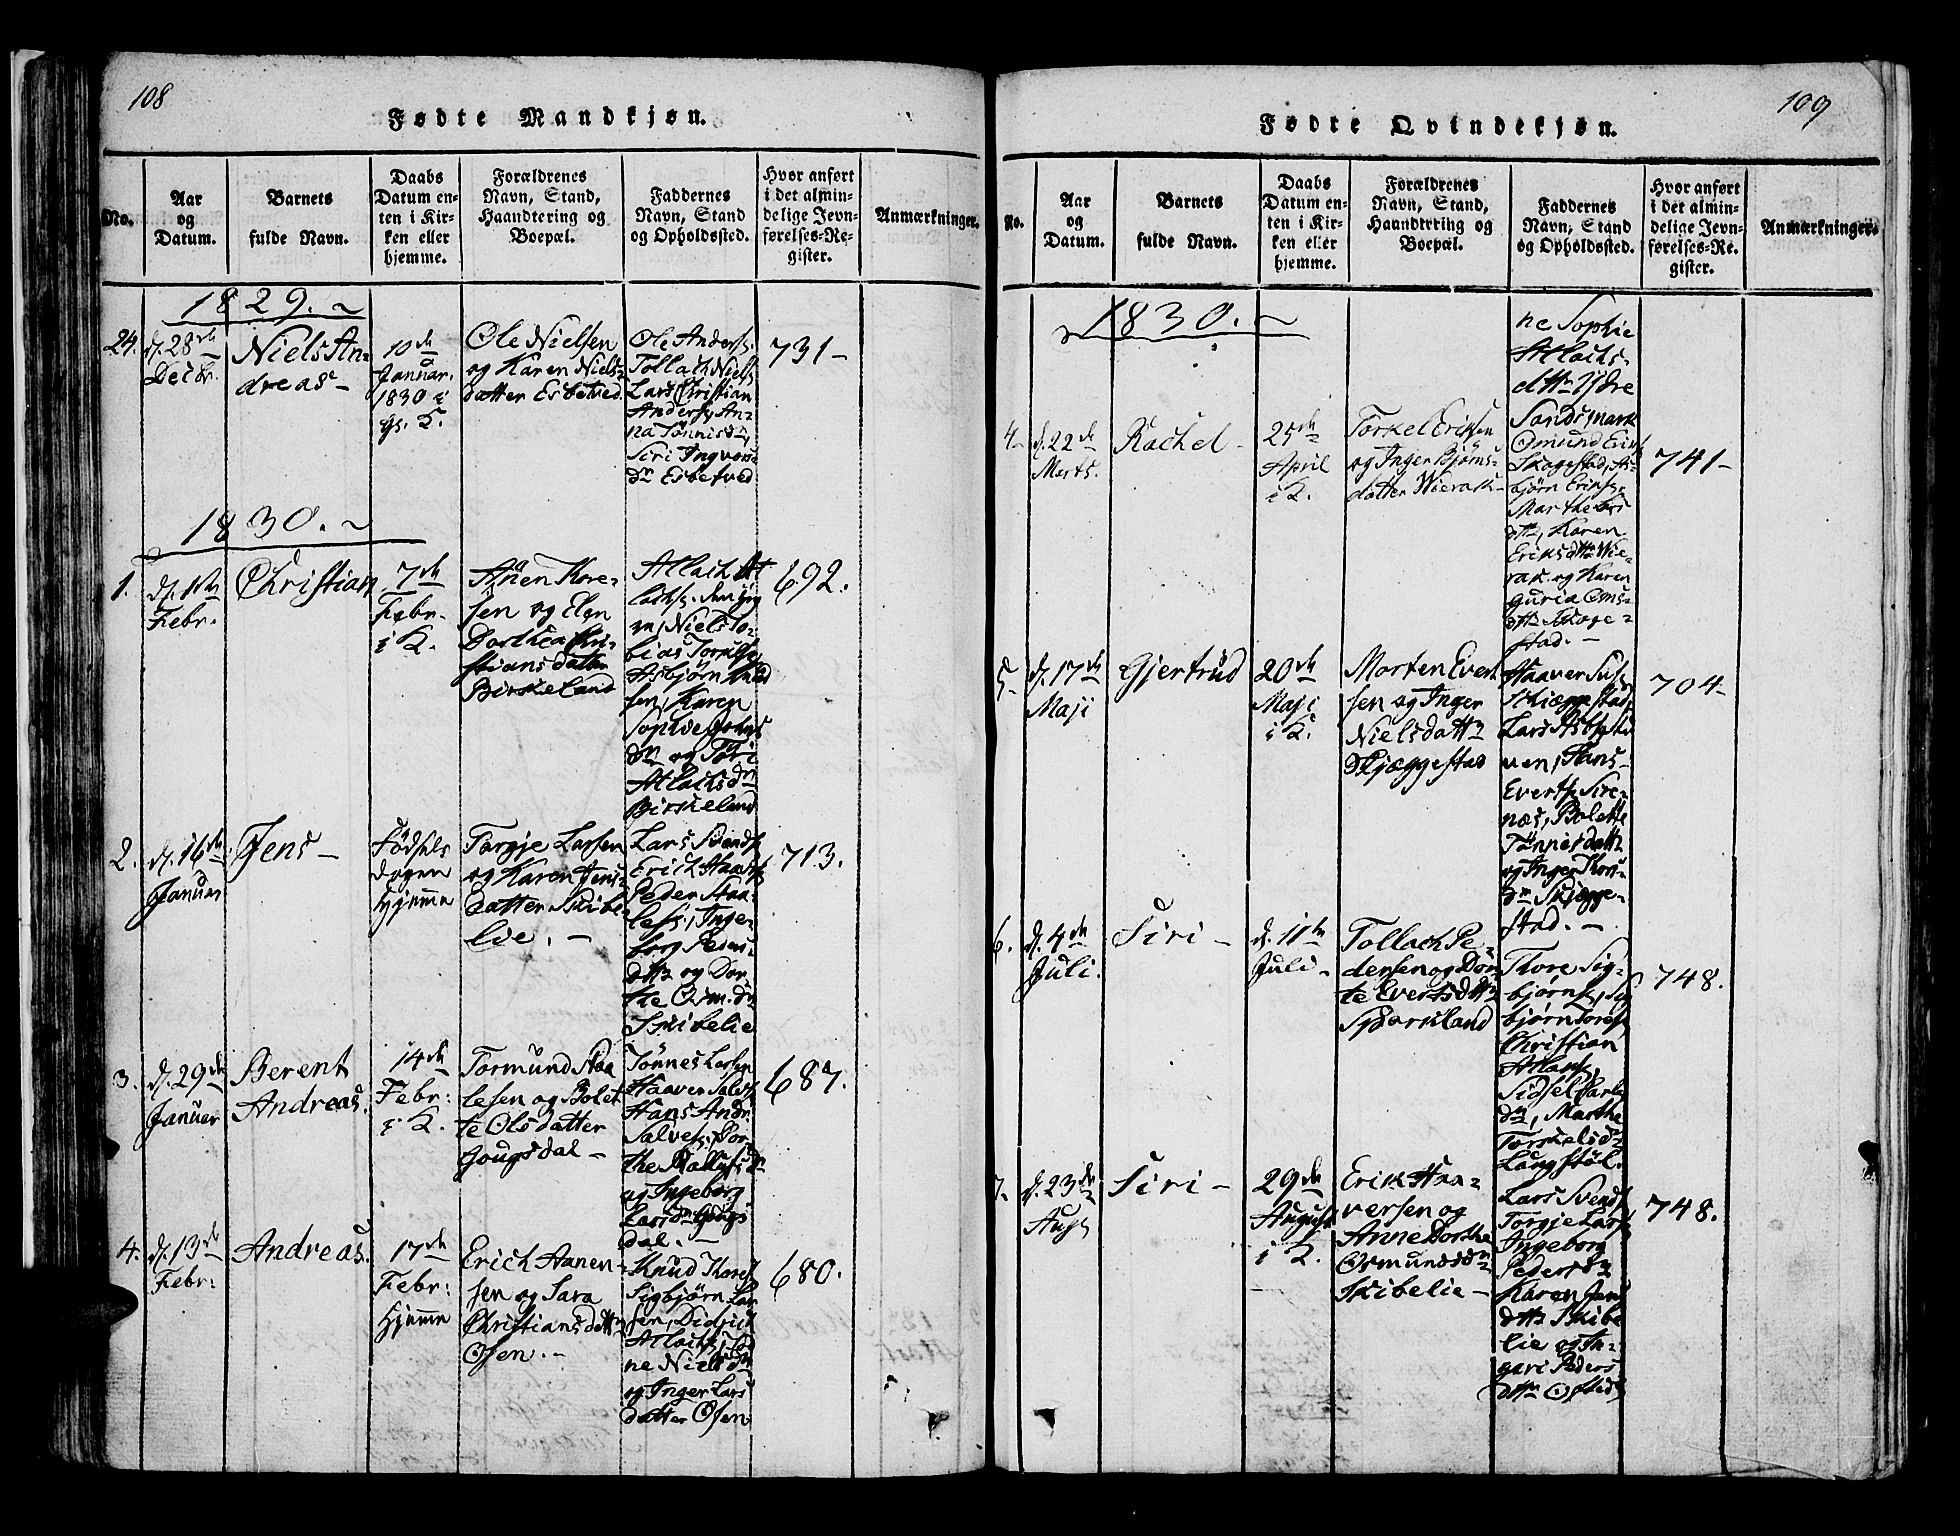 108
Fødte Mandkjøn.
No.
Aar
og
Datum.
Barnets
fulde Navn.
Daabs
Datum en-
ten i Kir-
ken eller
hjemme.
Forældrenes
Navn, Stand,
Haandtering og
Boepæl.
Faddernes
Navn, Stand
og Opholdssted.
Hvor anført
i det almin-
delige Jevn-
førelses-Re-
gister.
Anmærkninger.
1829.
24.
d. 28de
Decbr.
Niels An-
dreas
10de
Januar.
1830 i
K.
Ole Nielsen
og Karen Niels-
datter Esbetved
Ole Anders.
Tollach Niels.
Lars Christian
Anders. An-
na Tönnisdr.
Siri Ingvors
dr Esbetved
731
1830.
1.
d. 1ste
Febr.
Christian
7de
Febr.
i K.
Aanen Kore-
sen og Elen
Dorthea Chri-
stiansdatter
Birkeland
Atlach At
lachs.
Niels To-
bias
Asbjörn
sen, Karen
Sophie
dr og
Atlachsdr
Birkeland
692.
2.
d. 16de
Januar
Jens
Födsels
dagen
Hjemme
Targje Larsen
og Karen Jens-
datter Skibe-
lie.
Lars Svends
Erich Haavs
Peder Staa-
les., Inge-
borg Peders
dttr og Dor-
the Osm.dr
Skibelie
713.
3.
d. 29de
Januar
Berent
Andreas.
14de
Febr:
i K.
Tormund Staa
lesen og Bolet
te Olsdatter
Gougsdal
Tönnes Larsen
Haaver Salves
Hans Andr.
Salves., Dor-
the
og Ingeborg
Larsdr Gougs
dal.
687.
4.
d. 13de
Febr:
Andreas.
17de
Febr:
Hjemme
Erich Aanen-
sen og Sara
Christiansdttr
Osen.
Knud Thores
Sigbjörn Lar
sen, Didrich
Atlachs,
ne Nielsdr
og Inger Lars
datter Osen
680.
109
Fødte Qvindekjøn.
No.
Aar
og
Datum.
Barnets
fulde Navn.
Daabs
Datum en-
ten i Kir-
ken eller
hjemme.
Forældrenes
Navn, Stand,
Haandtering og
Boepæl.
Faddernes
Navn, Stand
og Opholdssted.
Hvor anført
i det almin-
delige Jevn-
førelses-Re-
gister.
Anmærkninger.
1830.
ne Sophie
Atlachs-
dttr Ydre
Sandsmark
4
d. 22de
Merts.
Rachel
25de
April
i K.
Torkel Eriksen
og Inger Björns-
datter Wierak
Osmund Eriks
Skogestad, As-
björn Eriks.
Marthe Lars
dttr, Karen
Eriksdttr Wie-
rak og Karen
Guria Osms-
dttr Skoge-
stad.
741
5
d. 17de
Maji
Gjertrud
20de
Maji
i K.
Morten Evert
sen og Inger
Nielsdattr
Skjæggestad
Haaver
Skiæggestad,
Lars
uen, Hans
Everts. Sire-
næs, Bolette
Tönnesdattr
og Inger Thors
dr Skjægge-
stad.
704
6.
d. 4de
Juli.
Siri
d. 11te
Juli
Tollach Pe-
dersen og Dor-
te Evertsdttr
Sparkland
Thore Sig-
björns., Sig
björn Tores.
Christian
Atlaks,
Sidsel Carls
dr, Marthe
Torkelsdr
Langstöl.
748.
7.
d. 23de
Augs
Siri
29de
August
i K.
Erik Haa-
versen og
Anne Dorthe
Osmundsdr
Skibelie
Lars Svends
Torgje Lars.
Ingeborg
Pedersdr
Karen Jens
dttr Skibe
lie og In-
gari Peders
dttr Ofsted
748.